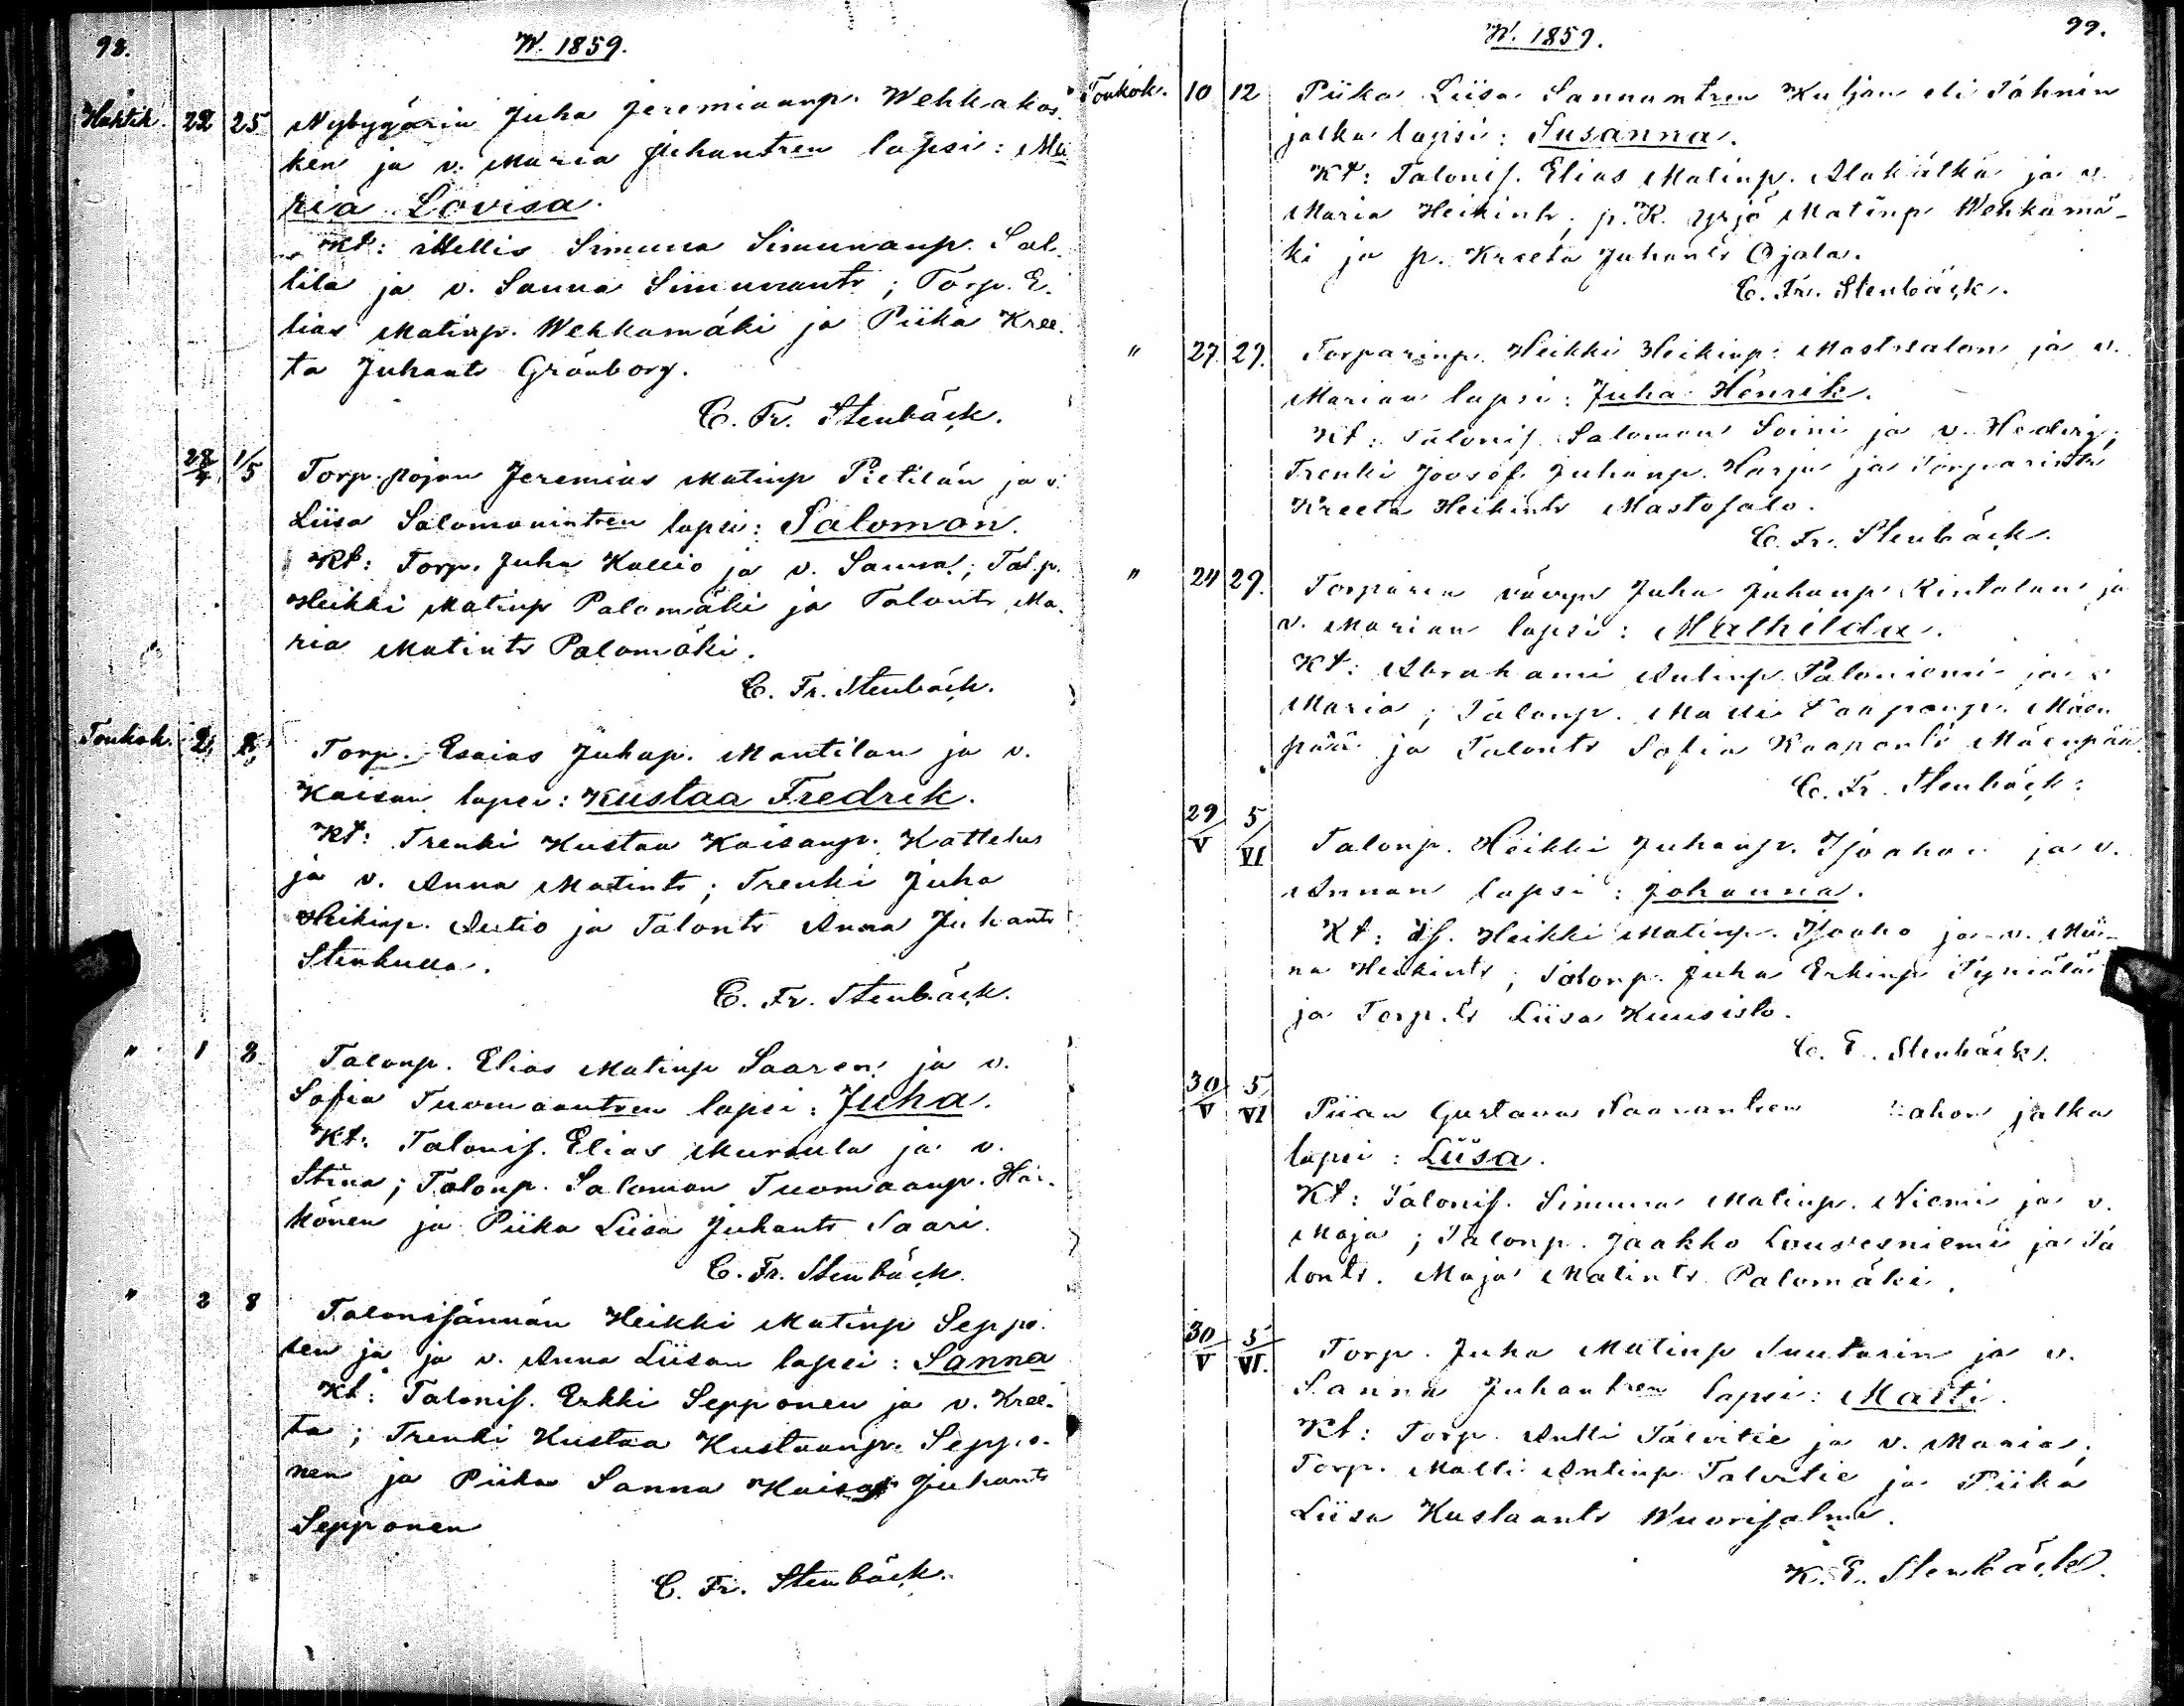 98.
W. 1859.
Huhtik. 22 25 Nybygärin Juha Jeremiaanp. Wehkakos-
ken ja v. Maria Juhantren lapsi: Ma
ria Lovisa.
Kt: itellis Simuna Simunanp. Sal-
lila ja v. Sanna Simunantr; Torp. E-
lias Matinp. Wehkamäki ja Piika Kree-
ta Juhantr Grönborg.
C. Fr. Stenbäck.
28/4 1/5 Torp. pojan Jeremias Matinp Pietilän ja v.
Liisa Salomonintren lapsi: Salomon.
Kt: Torp. Juha Kallio ja v. Sanna; Tal.p.
Heikki Matinp Palomäki ja Talontr Ma-
ria Matintr Palomäki.
C. Fr. Stenbäck.
Toukok. 2 8 Torp. Esaias Juhap. Mantilan ja v.
Kaisan lapsi: Kustaa Fredrik.
Kt: Trenki Kustaa Kaisanp. Kattelus
ja v. Anna Matintr; Trenki Juha
Heikinp. Autio ja Talontr Anna Juhantr
Stenkulla.
C. Fr. Stenbäck.
" 1 8 Talonp. Elias Matinp Saaren ja v.
Sofia Tuomaantren lapsi: Juha.
Kt: Talonis. Elias Mursula ja v.
Stina; Talonp. Salomon Tuomaanp. Här-
könen ja Piika Liisa Juhantr Saari.
C. Fr. Stenbäck.
" 2 8 Talonisännän Heikki Matinp Seppo-
sen ja ja v. Anna Liisan lapsi: Sanna
Kt: Talonis. Erkki Sepponen ja v. Kree-
ta; Trenki Kustaa Kustaanp. Seppo-
nen ja Piika Sanna Kaisa Juhantr
Sepponen
C. Fr. Stenbäck.
99.
W. 1859.
Toukok. 10 12 Piika Liisa Sannantren Kuljun eli Tähnin
jalka lapsi: Susanna.
Kt: Talonis. Elias Matinp. Alakälkä ja v.
Maria Heikintr; p. K. Yrjö Matinp Wehkamä-
ki ja p. Kreeta Juhantr Ojala.
C. Fr. Stenbäck.
" 27 29. Torparinp. Heikki Heikinp. Mastosalon ja v.
Marian lapsi: Juha Henrik.
Kt: Talonis. Salomon Soini ja v. Hedvig;
Trenki Joosef Juhanp. Harju ja Torparintr
Kreeta Heikintr Mastosalo.
C. Fr. Stenbäck.
" 24 29. Torparin vävyn Juha Juhanp Rintalan ja
v. Marian lapsi: Mathilda.
Kt: Abrahami Antinp. Paloniemi ja v
Maria; Talonp. Matti Kaaponp. Mäen
pää ja Talontr Sofia Kaapontr Mäenpää.
C. Fr. Stenbäck.
29/V 5/VI Talonp. Heikki Juhanp. Isoahon ja v.
Annan lapsi: Johanna.
Kt: Is. Heikki Matinp. Isoaho ja v. Mii-
na Heikintr; Talonp. Juha Erkinp Tyniälä
ja Torp.tr Liisa Kuusisto.
C. F. Stenbäck.
30/V 5/VI Piian Gustava Saarantren ahon jalka
lapsi: Liisa.
Kt: Talonis. Simuna Matinp. Niemi ja v.
Maja; Talonp. Jaakko Louvesniemi ja Ta
lontr. Maja Matintr Palomäki.
30/V 5/VI. Torp. Juha Matinp Suutarin ja v.
Sanna Juhantren lapsi: Matti.
Kt: Torp. Antti Talvitie ja v. Maria;
Torp. Matti Antinp Talvitie ja Piika
Liisa Kustaantr Wuorisalmi.
K. F. Stenbäck.